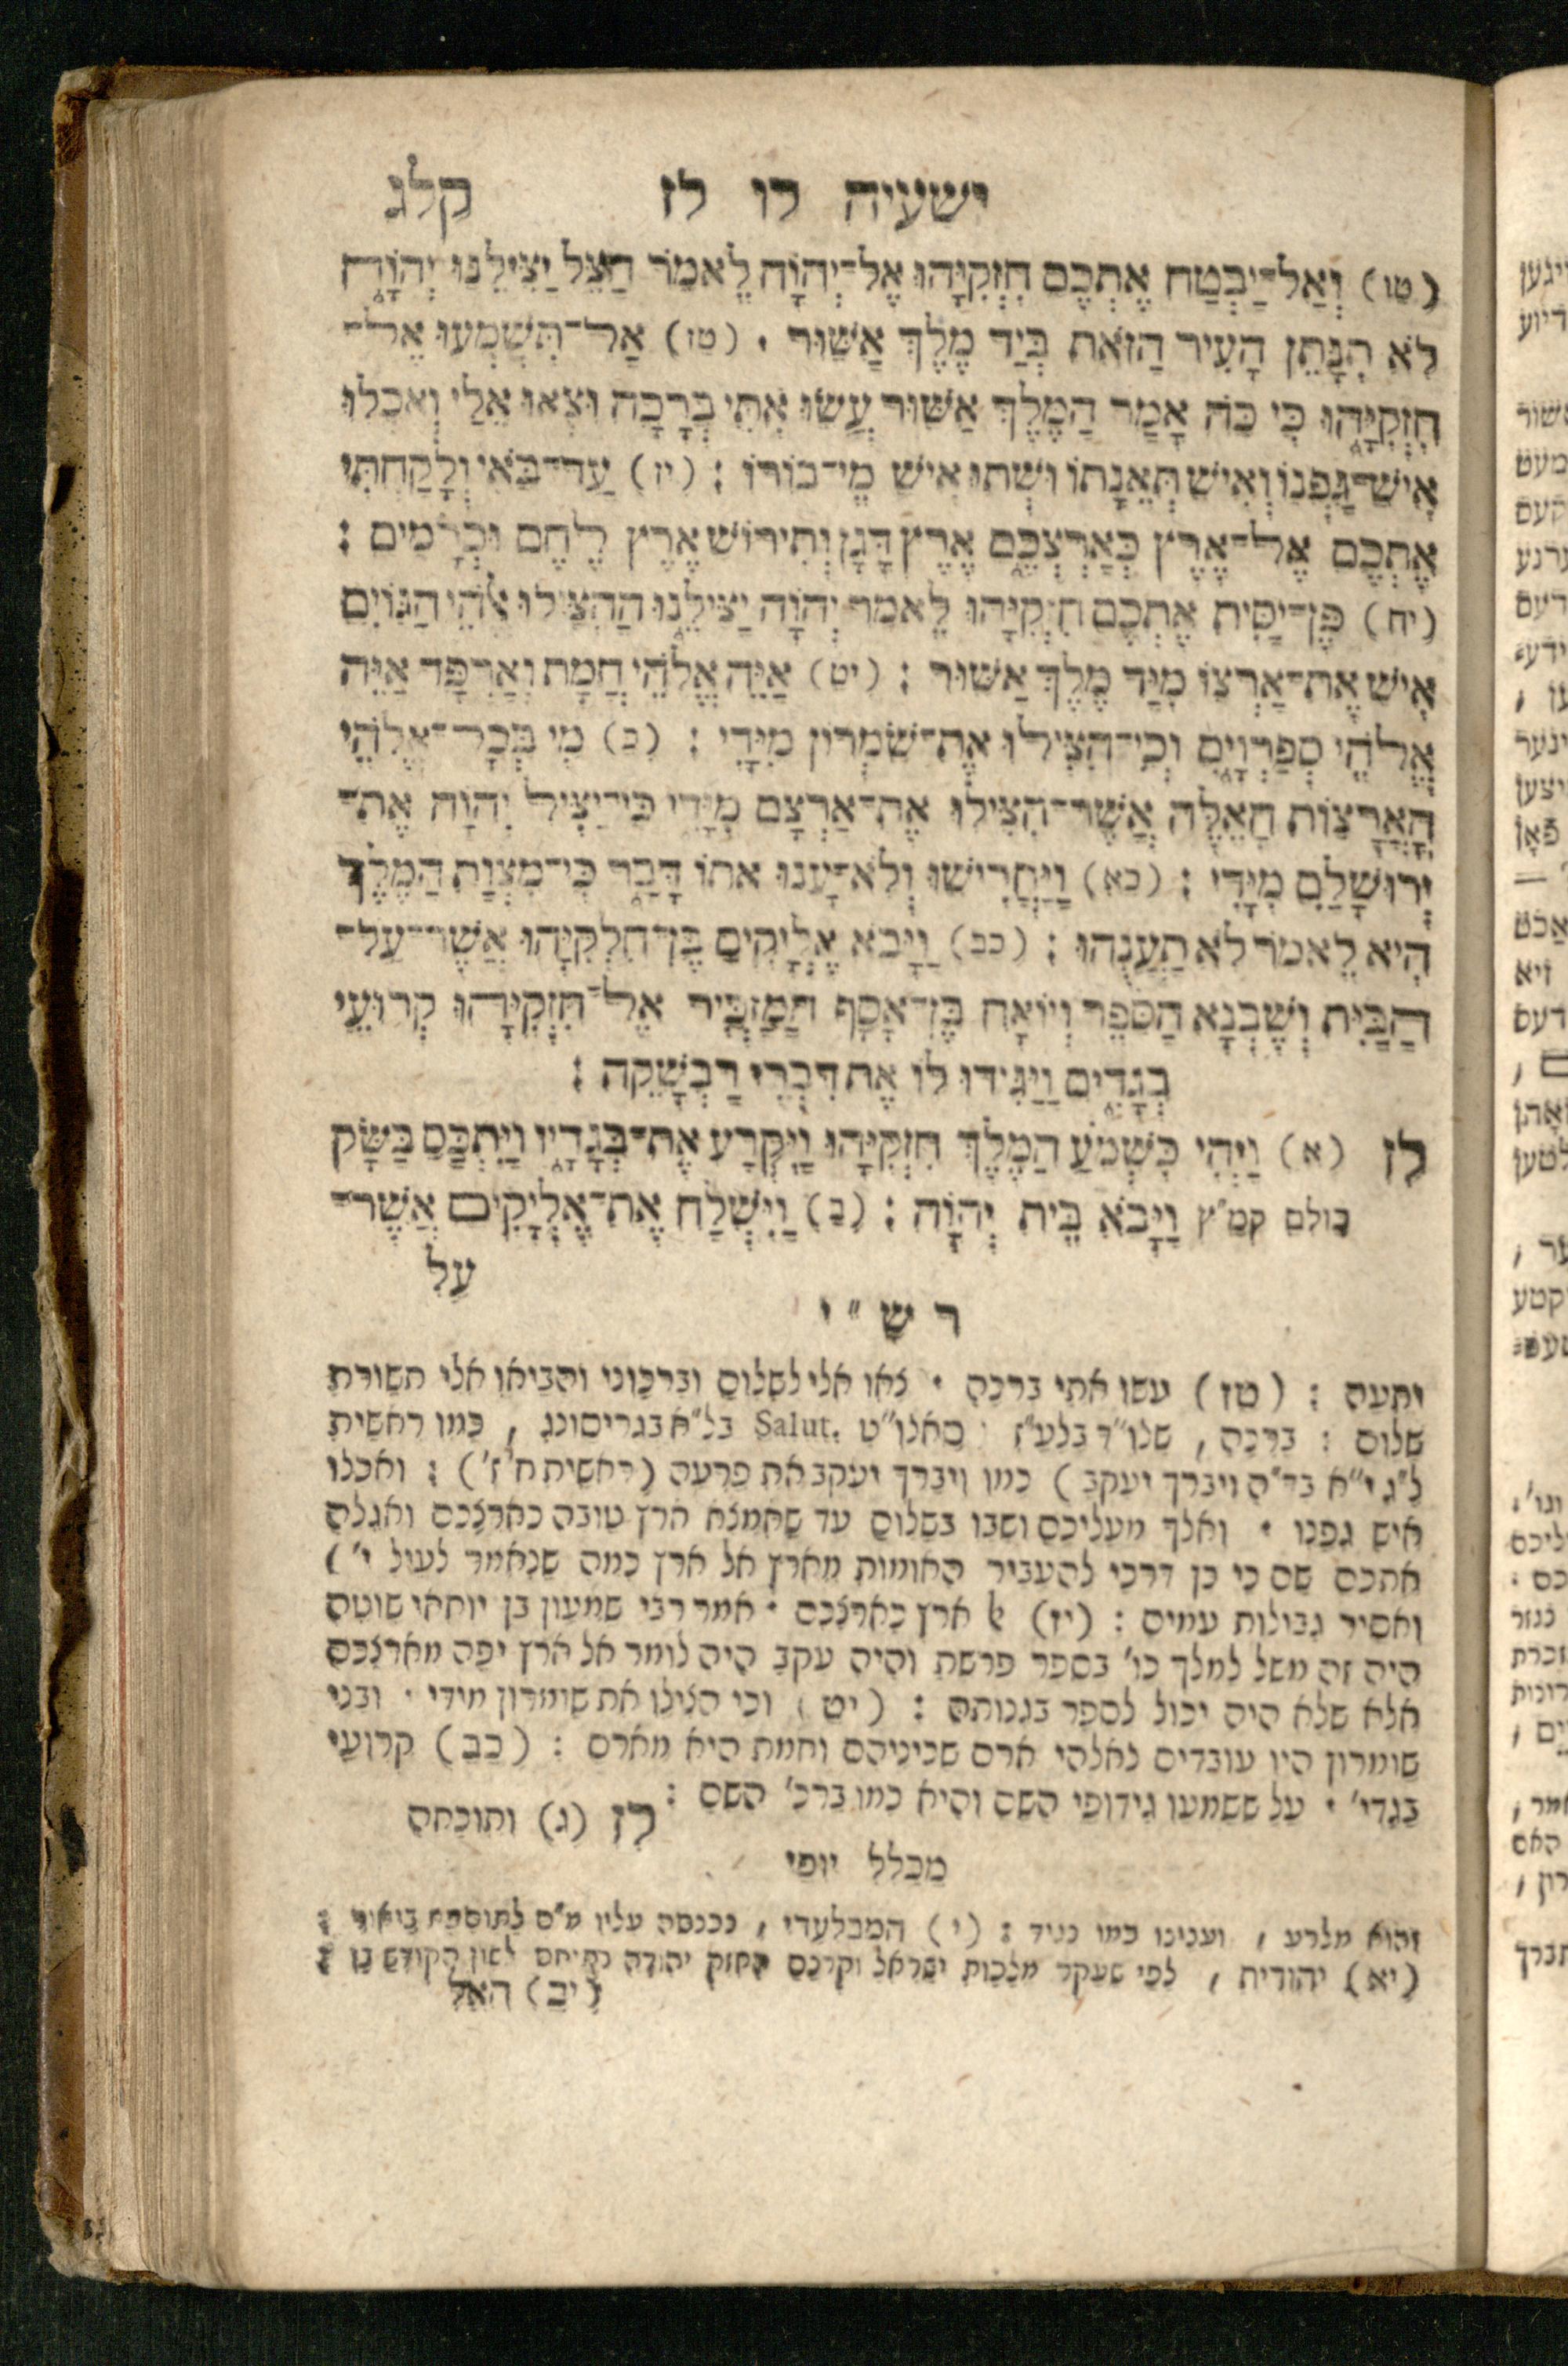 ישעיה לו לז קלג
(טו) וְאַל־יַבְטַח אֶתְכֶם חִזְקִיָּהוּ אֶל־יְהוָה לֵאמֹר הַצֵּל יַצִּילֵנוּ יְהוָה
לֹא תִנָּתֵן הָעִיר הַזֹּאת בְּיַד מֶלֶךְ אַשּׁוּר · (טז) אַל־תִּשְׁמְעוּ אֶל־
חִזְקִיָּהוּ כִּי כֹה אָמַר הַמֶּלֶךְ אַשּׁוּר עֲשׂוּ אִתִּי בְרָכָה וּצְאוּ אֵלַי וְאִכְלוּ
אִישׁ־גַּפְנוֹ וְאִישׁ תְּאֵנָתוֹ וּשְׁתוּ אִישׁ מֵי־בוֹרוֹ : (יז) עַד־בֹּאִי וְלָקַחְתִּי
אֶתְכֶם אֶל־אֶרֶץ כְּאַרְצְכֶם אֶרֶץ דָּגָן וְתִירוֹשׁ אֶרֶץ לֶחֶם וּכְרָמִים :
(יח) פֶּן־יַסִּית אֶתְכֶם חִזְקִיָּהוּ לֵאמֹר יְהוָה יַצִּילֵנוּ הַהִצִּילוּ אֱלֹהֵי הַגּוֹיִם
אִישׁ אֶת־אַרְצוֹ מִיַּד מֶלֶךְ אַשּׁוּר : (יט) אַיֵּה אֱלֹהֵי חֲמָת וְאַרְפָּד אַיֵּה
אֱלֹהֵי סְפַרְוָיִם וְכִי־הִצִּילוּ אֶת־שֹׁמְרוֹן מִיָּדִי : (כ) מִי בְּכָל־אֱלֹהֵי
הָאֲרָצוֹת הָאֵלֶּה אֲשֶׁר־הִצִּילוּ אֶת־אַרְצָם מִיָּדִי כִּי־יַצִּיל יְהוָה אֶת־
יְרוּשָׁלִַם מִיָּדִי : (כא) וַיַּחֲרִישׁוּ וְלֹא־עָנוּ אֹתוֹ דָּבָר כִּי־מִצְוַת הַמֶּלֶךְ
הִיא לֵאמֹר לֹא תַעֲנֻהוּ : (כב) וַיָּבֹא אֶלְיָקִים בֶּן־חִלְקִיָּהוּ אֲשֶׁר־עַל־
הַבַּיִת וְשֶׁבְנָא הַסֹּפֵר וְיוֹאָח בֶּן־אָסָף הַמַּזְכִּיר אֶל־חִזְקִיָּהוּ קְרוּעֵי
בְגָדִים וַיַּגִּידוּ לוֹ אֶת דִּבְרֵי רַבְשָׁקֵה :
לז (א) וַיְהִי כִּשְׁמֹעַ הַמֶּלֶךְ חִזְקִיָּהוּ וַיִּקְרַע אֶת־בְּגָדָיו וַיִּתְכַּס בַּשָּׂק
כולם קמ״ץ וַיָּבֹא בֵּית יְהוָה : (ב) וַיִּשְׁלַח אֶת־אֶלְיָקִים אֲשֶׁר־
עַל
רש״י
יתעה : (טז) עשו אתי ברכה · צאו אלי לשלום וברכוני והביאו אלי תשורת
שלום : ברכה , שלו״ד בלע״ז סאלו״ט Salut. בל״א בגריסונג , כמו ראשית
ל״ג י״א בד״ה ויברך יעקב ) כמו ויברך יעקב את פרעה (ראשית מ״ז ז׳) : ואכלו
איש גפנו · ואלך מעליכם ושבו בשלום עד שאמצא ארץ טובה כארצכם ואגלה
אתכם שם כי כן דרכי להעביר האומות מארץ אל ארץ כמה שנאמר לעיל י׳ )
ואסיר גבולות עמים : (יז) אל ארץ כארצכם · אמר רבי שמעון בן יוחאי שוטה
היה זה משל למלך כו׳ בספר פרשת והיה עקב היה לומר אל ארץ יפה מארצכם
אלא שלא היה יכול לספר בגנותה : (יט) וכי הצילו את שומרון מידי · ובני
שומרון היו עובדים לאלהי ארם שכיניהם וחמת היא מארם : (כב) קרועי
בגדי׳ · על ששמעו גידופי השם והיא כמו ברכ׳ השם : לז (ג) ותוכחה
מכלל יופי
והוא מלרע , וענינו כמו נגיד : (י) המבלעדי , נכנסה עליו מ״ם לתוספת ביאור :
(יא) יהודית , לפי שעקר מלכות ישראל וקרנם החזק יהודה התיחס לשון הקודש בו :
(יב) האל